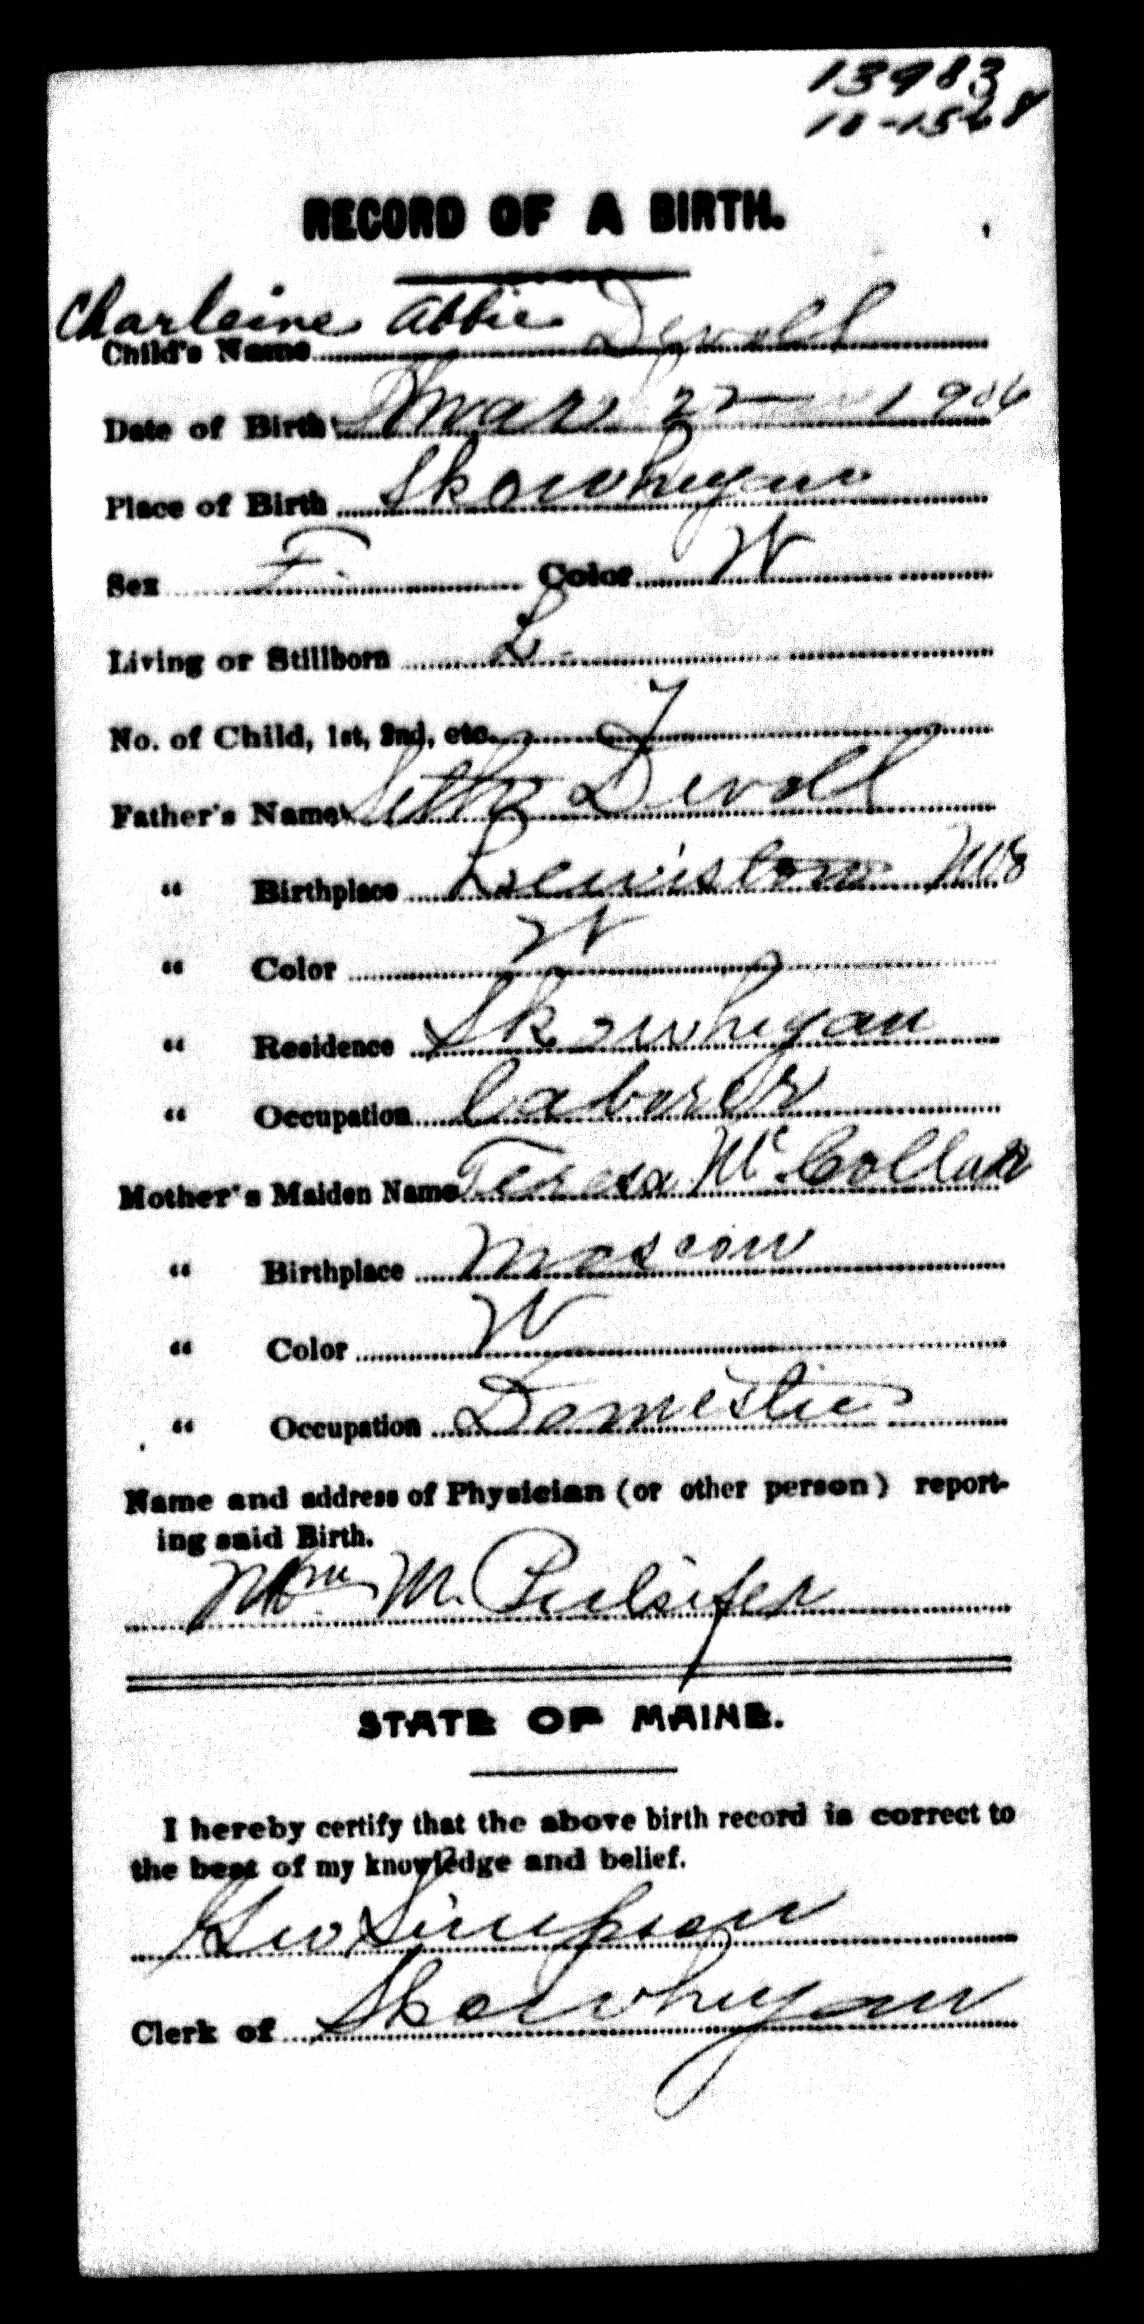 13983
10-1568
RECORD OF A BIRTH.
Charleine Abbie Devoll
Child's Name
Date of Birth Mar 22 1906
Place of Birth Skowhegan
Sex F. Color W
Living or Stillborn L
No. of Child, 1st, 2nd, etc. 7
Father's Name Seth Devoll
" Birthplace Lewiston Me
" Color W
" Residence Skowhegan
" Occupation Laborer
Mother's Maiden Name Teresa McCollar
" Birthplace Moscow
" Color W
" Occupation Domestic
Name and address of Physician (or other person) report-
ing said Birth.
Wm M. Pulsifer
STATE OF MAINE.
I hereby certify that the above birth record is correct to
the best of my knowledge and belief.
Geo Simpson
Clerk of Skowhegan